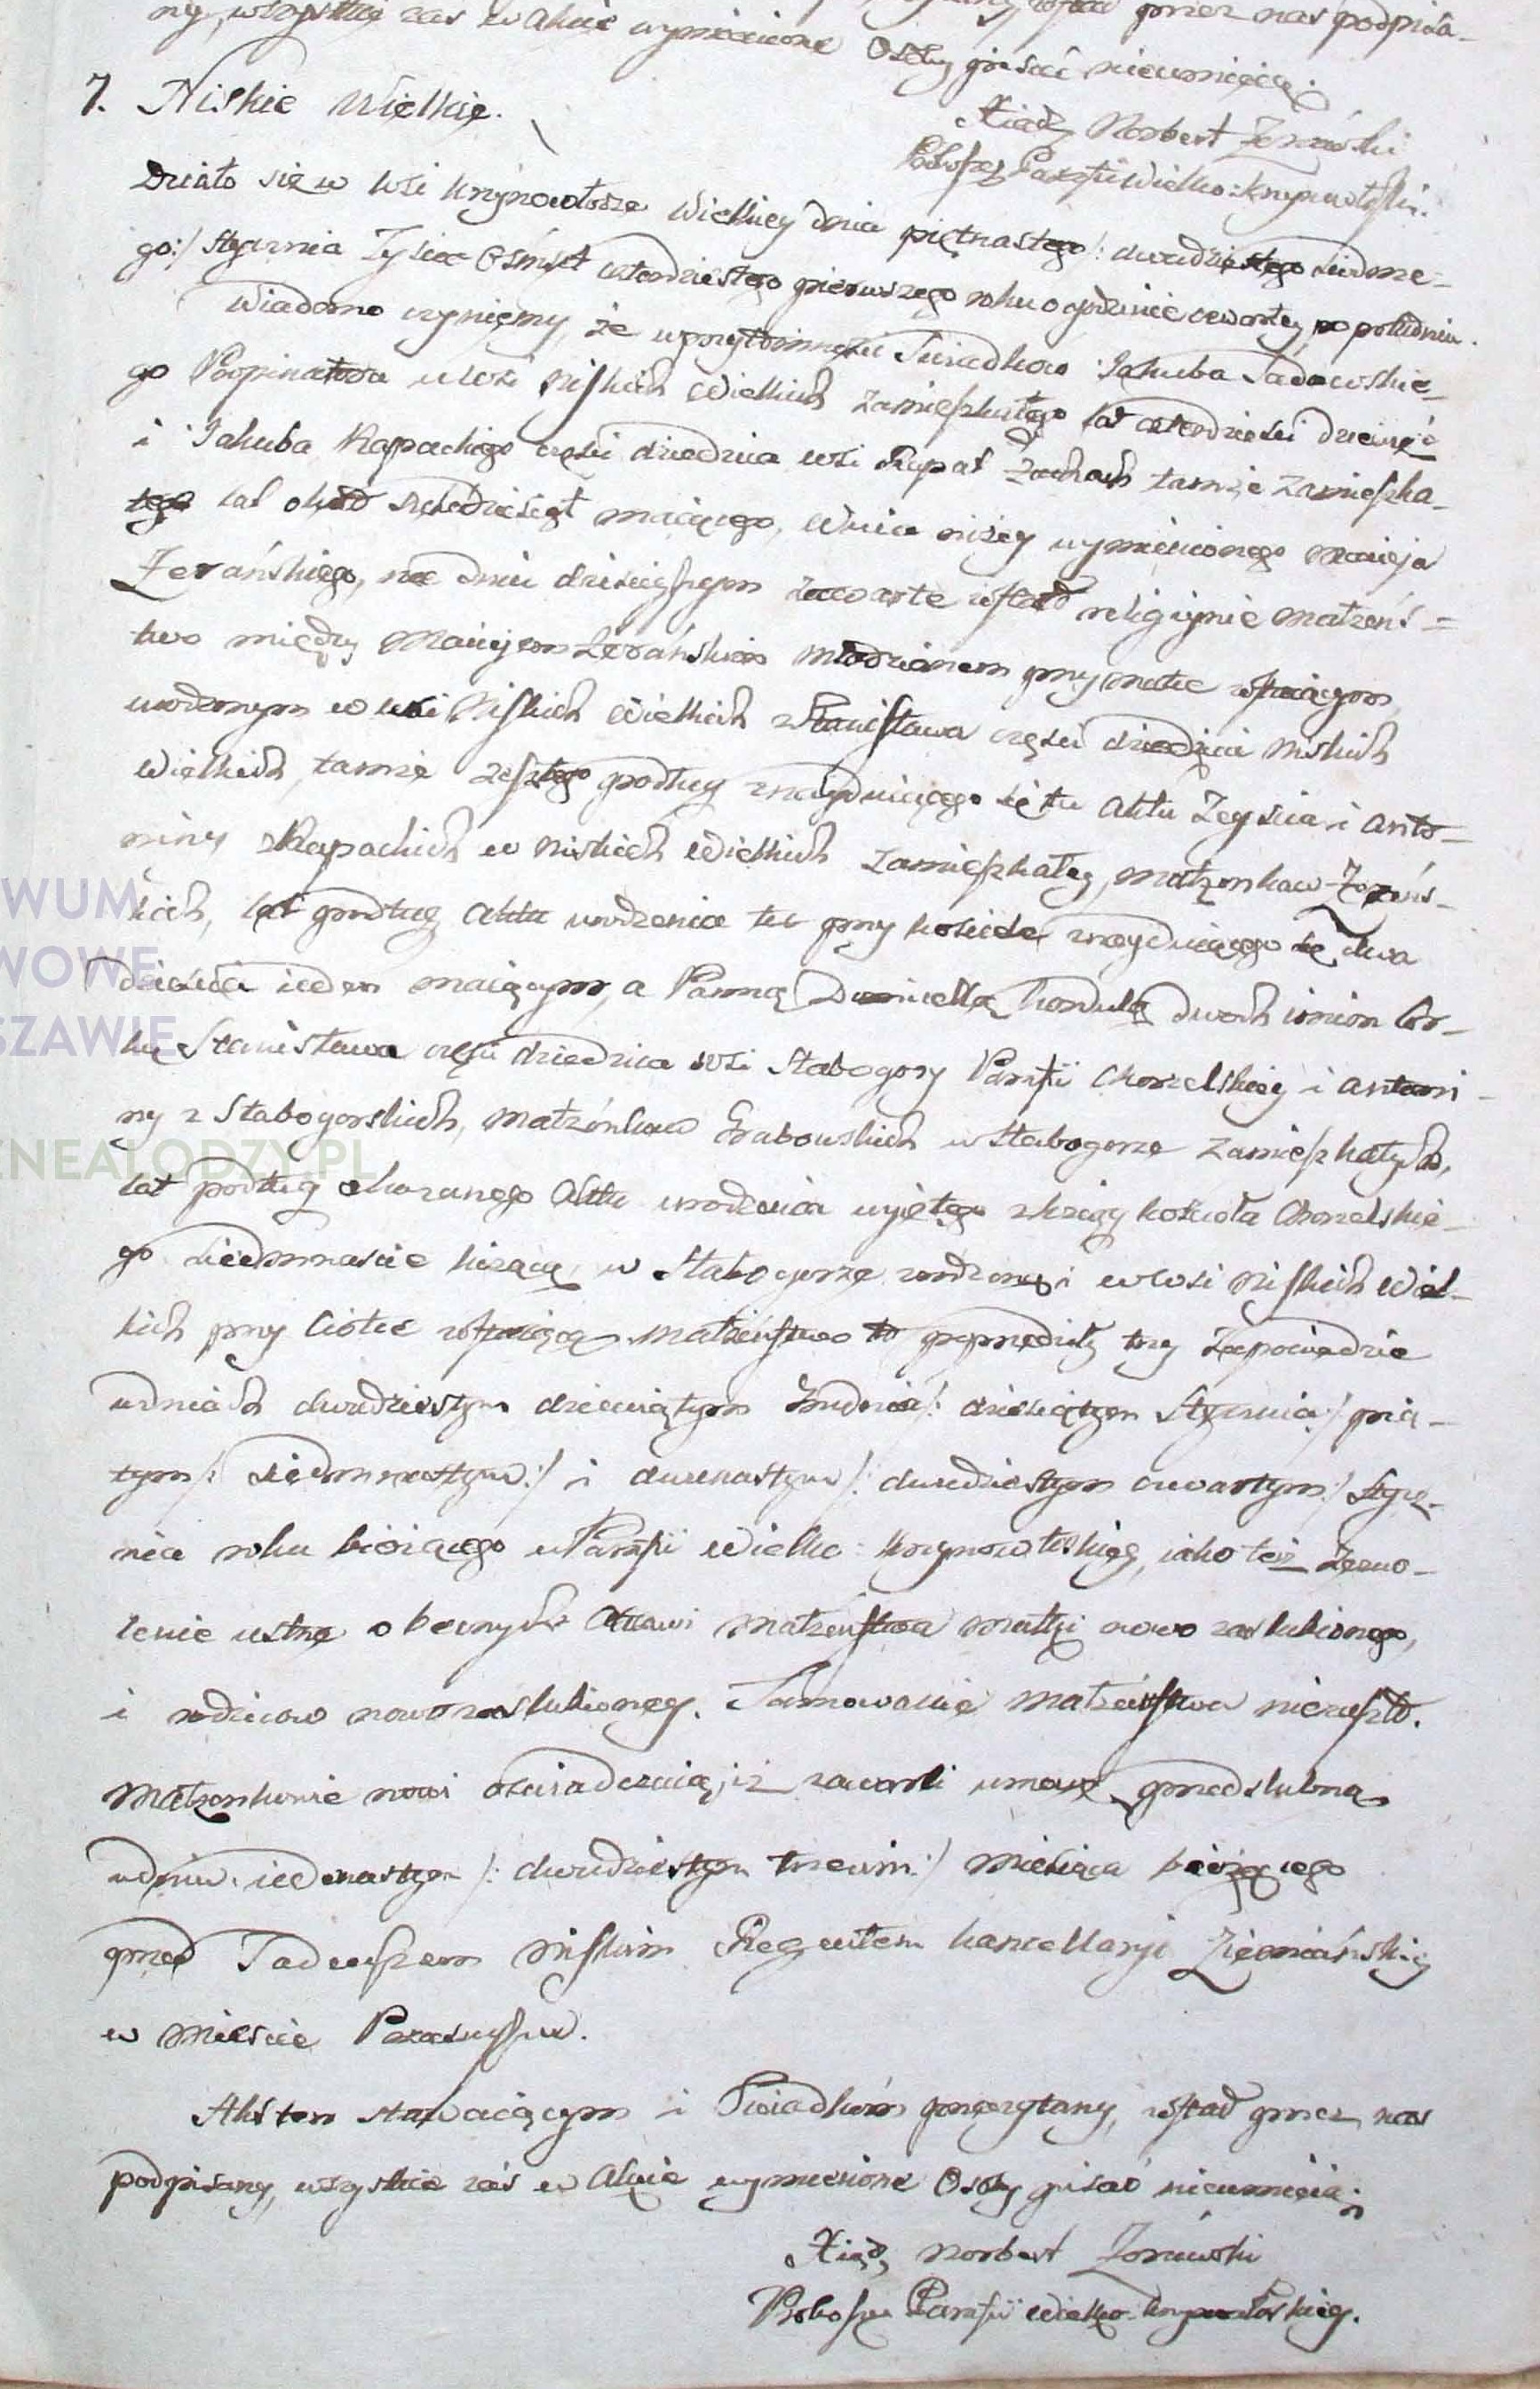 ny, wszystkie zaś w Akcie wymienione Osoby pisać nieumieią.
przez nas podpisa-
Xiądz Norbert
Proboszcz Parafii Wielko:Krzynowłoski.
7. Niskie Wielkie.
Działo się w wsi Krzynowłodze Wielkiey dnia piętnastego /: dwudziestego siodme-
go :/ Stycznia Tysiąc Ośmset czterdziestego pierwszego roku o godzinie czwartey po południu.
Wiadomo czyniemy, że w przytomności Swiadkow Jakuba Sadowskie-
go Propinatora w wsi Niskich Wielkich zamieszkałego lat czterdzieści dziewięć
i Jakuba Rapackiego części dziedzica wsi Rapat Żachach tamże zamieszka-
łego lat około sześcdziesiąt maiącego, Wuia niżey wymienionego Macieja
Żerańskiego, na dniu dzisieyszym zawarte zostało religiynie małżeńs=
two między Maciejem Żerańskim młodzianem przy matce zostaiącym
urodzonym w wsi Niskich Wielkich z Stanisława części dziedzica Niskich
Wielkich, tamże zeszłego podług znayduiącego się tu Aktu Zeyścia i Anto-
niny z Rapackich w Niskich Wielkich zamieszkałey, małżonkow Żerańs-
kich, lat podług Aktu urodzenia tu przy kościele znayduiącego się dwa
dzieścia ieden maiącym, a Panną Dwoch imion Cor-
ką Stanisława części dziedzica wsi Słabogory Parafii Chorzelskiey i Antoni-
ny z Słabogorskich, małżonkow Grabowskich w Słabogorze zamieszkałych,
lat podług okazanego Aktu urodzenia wyiętego z księgi kościoła Chorzelskie-
go siedmnaście liczącą, w Słabogorze urodzoną i w wsi Niskich Wiel-
kich przy Ciotce zostaiącą. Małżeństwo to poprzedziły trzy zapowiedzie
w dniach dwudziestym dziewiątym Grudnia /: dziesiątym Stycznia :/ pią-
tym /: siedmnastym :/ i dwunastym /: dwudziestym czwartym :/ Stycz-
nia roku bieżącego w Parafii Wielko: Krzynowłoskiey, iako też zezwo-
lenie ustne obecnych Aktowi małżeństwa matki nowo zaslubionego,
i rodzicow nowozaslubioney. Tamowanie małżeństwa niezaszło.
Małżonkowie nowi oswiadczaią, iż zawarli umowę przedslubną
w dniu iedenastym /: dwudziestym trzecim :/ miesiąca bieżącego
przed Tadeuszem Niskim Regentem kancellaryi Ziemiańskiey
w miescie Przasnyszu.
Akt ten stawaiącym i Swiadkom przeczytany, został przez nas
podpisany, wszystkie zaś w Akcie wymienione Osoby pisać nieumieią.
Xiądz Norbert
Proboszcz Parafii Wielko-Krzynowłoskiey.
WUM
WOWE
SZAWIE
ZNEALODZY.PL